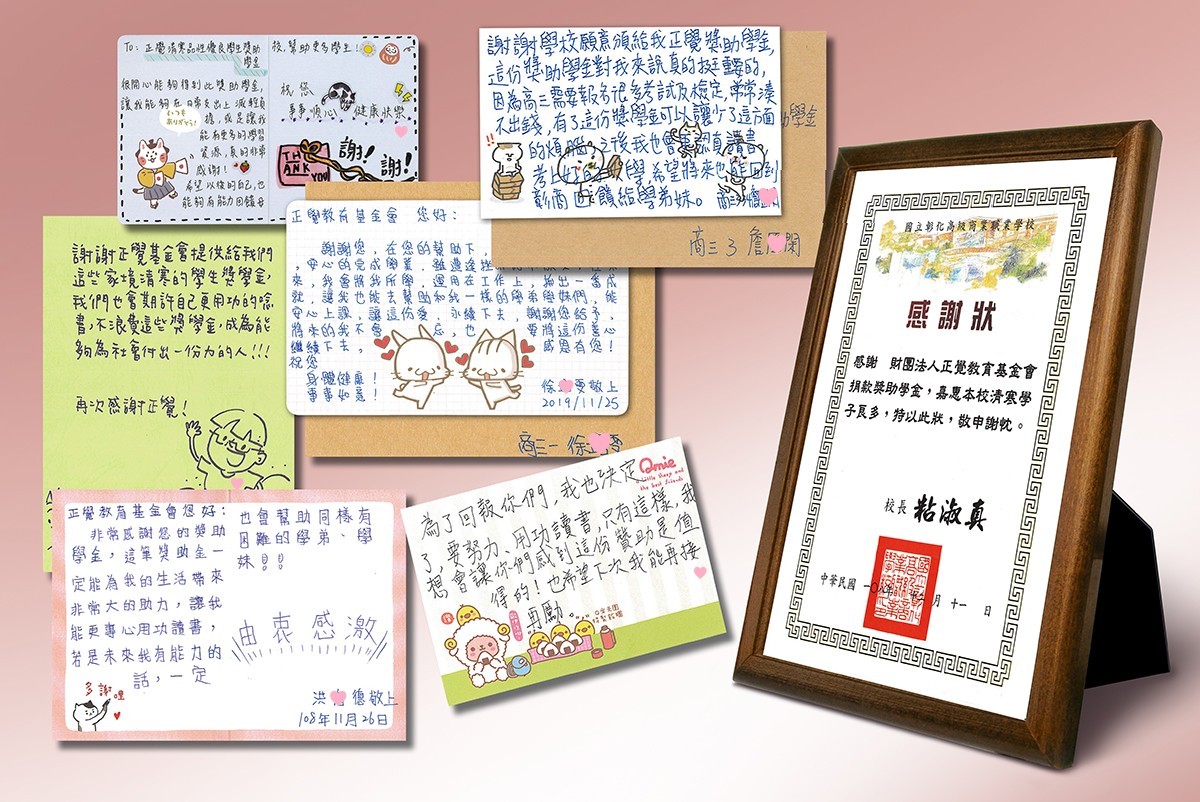 To: 正覺清寒品性優良學生獎助
學金
很開心能夠得到此獎助學金,
讓我能夠在日常支出上減輕負
擔,或是讓我
能有更多的學習
資源,真的非常
感謝!
希望以後的自己,也
能夠有能力回饋母
いつも
ありがとう!
校,幫助更多學生!
祝您
事事順心 健康快樂
THANK
YOU
謝!謝!
謝謝學校願意頒給我正覺獎助學金,
這份獎助學金對我來說真的挺重要的,
因為高三需要報名很多考試及檢定,常常湊
不出錢,有了這份獎學金可以讓少了這方面
的煩惱,之後我也會更認真讀書
考上好的大學,希望將來也能回到
彰商回饋給學弟妹。
助學金
商三3 詹
謝謝正覺基金會提供給我們
這些家境清寒的學生獎學金,
我們也會期許自己更用功的唸
書,不浪費這些獎學金,成為能
夠為社會付出一份力的人!!!
再次感謝正覺!
正覺教育基金會 您好:
謝謝您,在您的幫助下,
,安心的完成學業,雖遭逢
來,我會將我所學,運用在工作上,踏出一番成
就,讓我也能去幫助和我一樣的學弟學妹們,能
安心上課,讓這份愛,永續下去,謝謝您給予,
將來的我不會忘,也要將這份善心
繼續下去,感恩有您!
祝您
身體健康!
事事如意!
敬上
2019/11/25
商三一 徐
正覺教育基金會您好:
非常感謝您的獎助
學金,這筆獎助金一
定能為我的生活帶來
非常大的助力,讓我
能更專心用功讀書,
若是未來我有能力的
話,一定
也會幫助同樣有
困難的學弟、學
妹!!
由衷感激
多謝哩
洪 德敬上
108年11月26日
Qmie
little sheep and
the best friends
為了回報你們,我也決定
了,要努力、用功讀書,只有這樣,我
想會讓你們感到這份贊助是值
得的!也希望下次我能再接
再勵。
國立彰化高級商業職業學校
感謝狀
感謝 財團法人正覺教育基金會
捐款獎助學金,嘉惠本校清寒學
子良多,特以此狀,敬申謝忱。
校長 粘淑真
中華民國 一〇八年 十二月 十一 日